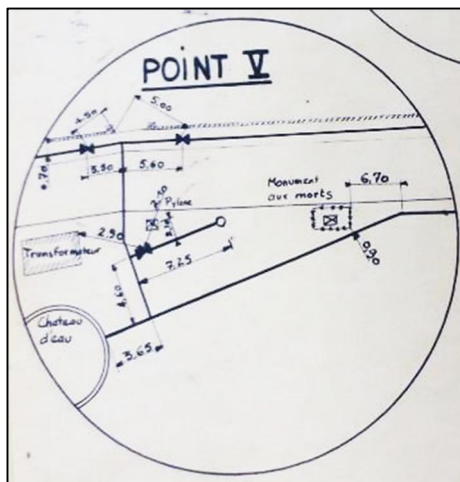 POINT V
4.50
5.00
0.70
3.50
5.60
Monument
aux morts
6.70
Pylone
2.90
Transformateur
7.25
0.90
4.60
Chateau
d'eau
3.65